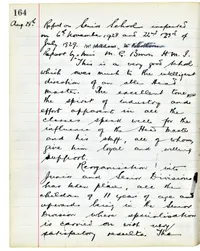 164
Aug 21st Report on Senior School inspected
on 6th November 1928 and 22nd & 23rd of
July 1929.
Report by Miss M. E. Brown H.M.I.
This is a very good school
which owes much to the intelligent
direction of an able Head
master. The excellent tone
the spirit of industry and
effort apparent in all the
classes speak well for the
influence of the Head Master
and his staff, all of whom
give him loyal and willing
support.
Reorganisation into
Junior and Senior Divisions
has taken place, all the
children of 11 years of age and
upwards being in the Senior
Division where specialisation
is carried on with very
satisfactory results. The